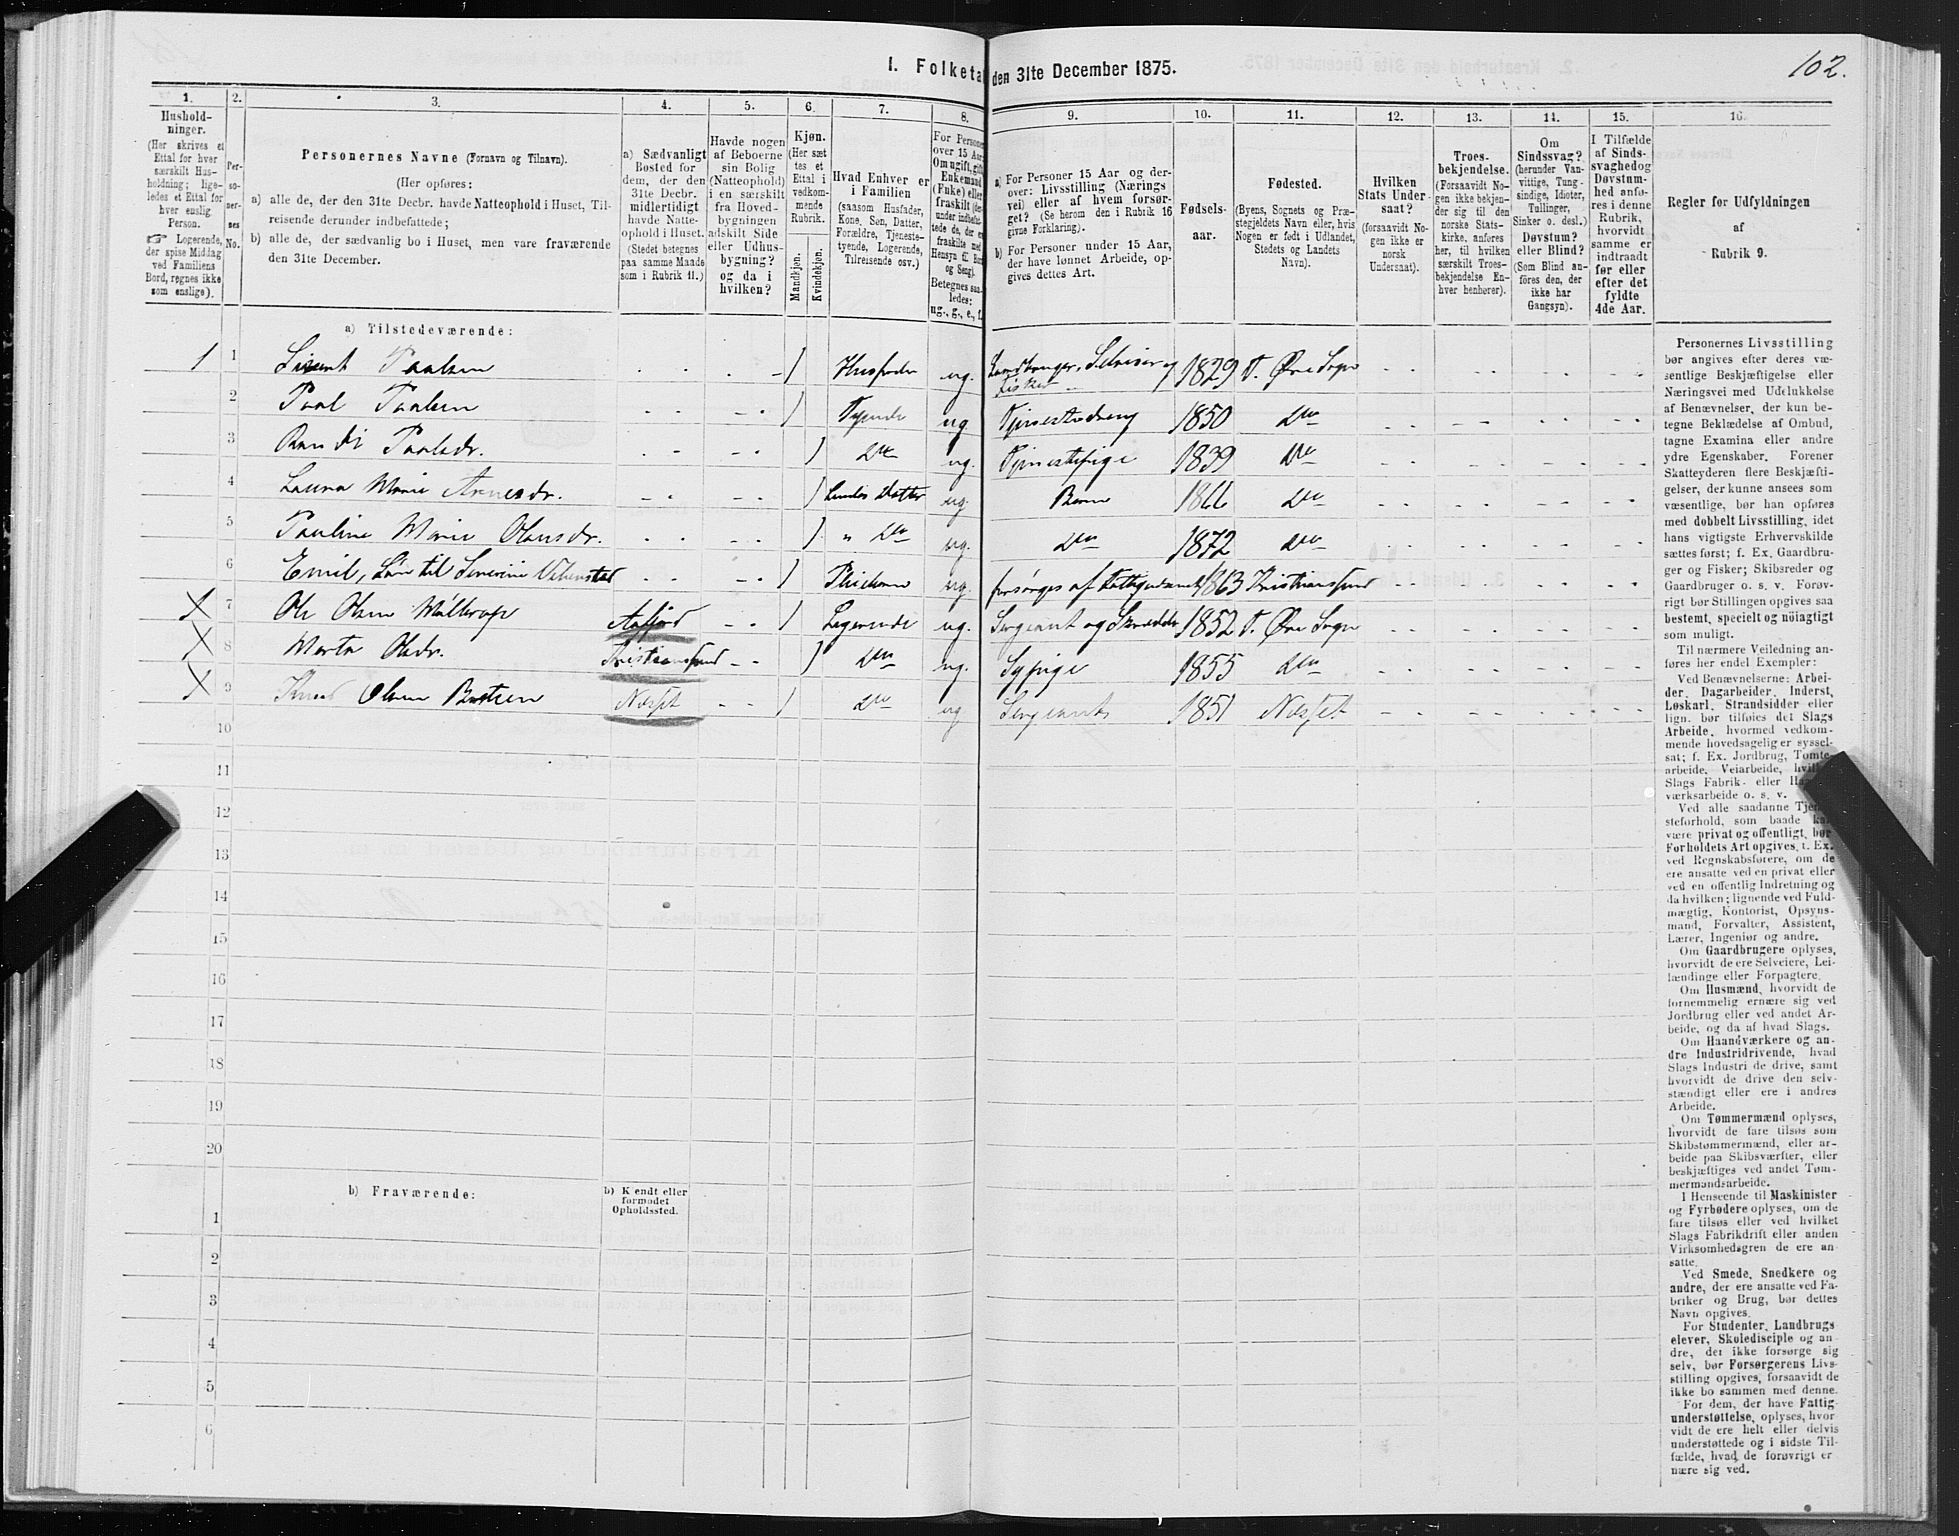 1. Folketa
den 31te December 1875.
102.
1.
2.
3.
4.
5.
6.
7.
8.
9.
10.
11.
12.
13.
14.
15.
16.
Hushold-
ninger.
(Her skrives et
Ettal for hver
særskilt Hus-
holdning; lige-
ledes et Ettal for
hver enslig
Person.
☞ Logerende,
der spise Middag
ved Familiens
Bord, regnes ikke
som enslige).
Per-
so-
ner-
nes
No.
Personernes Navne (Fornavn og Tilnavn).
(Her opføres:
a) alle de, der den 31te Decbr. havde Natteophold i Huset, Til-
reisende derunder indbefattede;
b) alle de, der sædvanlig bo i Huset, men vare fraværende
den 31te December.
a) Sædvanligt
Bosted for
dem, der den
31te Decbr.
midlertidigt
havde Natte-
ophold i Huset.
(Stedet betegnes
paa samme Maade
som i Rubrik 11.)
Havde nogen
af Beboerne
sin Bolig
(Natteophold)
i en særskilt
fra Hoved-
bygningen
adskilt Side
eller Udhus-
bygning?
og da i
hvilken?
Kjøn.
(Her sæt
tes et
Ettal i
vedkom-
mende
Rubrik.
Mandkjøn.
Kvindekjøn.
Hvad Enhver er
i Familien
(saasom Husfader,
Kone, Søn, Datter,
Forældre, Tjeneste-
tyende, Logerende,
Tilreisende osv.)
For Persone
over 15 Aar
Om ugift, gift
Enkemand
(Enke) eller
fraskilt (der-
under indbefat-
tede de, der ere
fraskilte med
Hensyn til Bord
og Seng).
Betegnes saa-
ledes:
ug., g., e., f.
a) For Personer 15 Aar og der-
over: Livsstilling (Nærings
vei) eller af hvem forsør-
get? (Se herom den i Rubrik 16
givne Forklaring).
b) For Personer under 15 Aar,
der have lønnet Arbeide, op-
gives dettes Art.
Fødsels-
aar.
Fødested.
(Byens, Sognets og Præ-
stegjeldets Navn eller, hvis
Nogen er født i Udlandet,
Stedets og Landets
Navn).
Hvilken
Stats Under-
saat?
(forsaavidt No-
gen ikke er
norsk
Undersaat).
Troes-
bekjendelse.
(Forsaavidt No-
gen ikke bekjen-
der sig til den
norske Stats-
kirke, anføres
her, til hvilken
særskilt Troes-
bekjendelse En-
hver henhører).
Om
Sindssvag?
(herunder Van-
vittige, Tung-
sindige, Idioter,
Tullinger,
Sinker o. desl.)
Døvstum?
eller Blind?
(Som Blind an-
føres den, der
ikke har
Gangsyn).
I Tilfælde
af Sinds-
svaghed og
Døvstum-
hed anfø-
res i denne
Rubrik,
hvorvidt
samme er
indtraadt
før eller
efter det
fyldte
4de Aar.
Regler for Udfyldningen
af
Rubrik 9.
a) Tilstedeværende:
1 1 Sivert Paalsen 1 Husfader ug. Landbruger, Selveier og Fisker 1829 T. Øre Sogn
2 Paal Paalsen 1 Tyende ug. Tjenestedreng 1850 do
3 Randi Paalsdr. 1 do ug. Tjenestepige 1839 do
4 Laura Marie Arnesdr. 1 Datter ug. Barn 1866 do
5 Pauline Marie Olausdr. 1 " do ug. do 1872 do
6 Emil, Søn til Severine 1 ug. forsørges af Fattigvæsenet 1863 Kristiansund
1 7 Ole Olsen Aafjord 1 Logerende ug. Sergeant og Skrædder 1852 T. Øre Sogn
1 8 Marta Olsdr. Kristiansund 1 do ug. Sypige 1855 do
1 9 Knud Olsen Næsset 1 do ug Sergeant 1851 Næsset
10
11
12
13
14
15
16
17
18
19
20
b) Fraværende:
b) Kjendt eller
formodet
Opholdssted.
1
2
3
4
5
6
Personernes Livsstilling
bør angives efter deres væ-
sentlige Beskjæftigelse eller
Næringsvei med Udelukkelse
af Benævnelser, der kun be-
tegne Beklædelse af Ombud,
tagne Examina eller andre
ydre Egenskaber. Forener
Skatteyderen flere Beskjæfti-
gelser, der kunne ansees som
væsentlige, bør han opføres
med dobbelt Livsstilling, idet
hans vigtigste Erhvervskilde
sættes først; f. Ex. Gaardbru-
ger og Fisker; Skibsreder og
Gaardbruger o. s. v. Forøv-
rigt bør Stillingen opgives saa
bestemt, specielt og nøiagtigt
som muligt.
Til nærmere Veiledning an-
føres her endel Exempler:
Ved Benævnelserne: Arbei-
der, Dagarbeider, Inderst,
Løskarl, Strandsidder eller
lign. bør tilføies det Slags
Arbeide, hvormed vedkom-
mende hovedsagelig er syssel-
sat; f. Ex. Jordbrug, Tomte-
arbeide, Veiarbeide, hvilket
Slags Fabrik- eller Haand-
værksarbeide o. s. v.
Ved alle saadanne Tjene-
steforhold, som baade kan
være privat og offentligt, bør
Forholdets Art opgives, t. Ex.
ved Regnskabsførere, om de
ere ansatte ved en privat eller
ved en offentlig Indretning og
da hvilken; lignende ved Fuld-
mægtig, Kontorist, Opsyns-
mand, Forvalter, Assistent,
Lærer, Ingeniør og andre.
Om Gaardbrugere oplyses,
hvorvidt de ere Selveiere, Lei-
lændinge eller Forpagtere.
Om Husmænd, hvorvidt de
fornemmelig ernære sig ved
Jordbrug eller ved andet Ar-
beide, og da af hvad Slags.
Om Haandværkere og an-
dre Industridrivende, hvad
Slags Industri de drive, samt
hvorvidt de drive den selv-
stændigt eller ere i andres
Arbeide.
Om Tømmermænd oplyses,
hvorvidt de fare tilsøs som
Skibstømmermænd, eller ar-
beide paa Skibsværfter, eller
beskjæftiges ved andet Tøm-
mermandsarbeide.
I Henseende til Maskinister
og Fyrbødere oplyses, om de
fare tilsøs eller ved hvilket
Slags Fabrikdrift eller anden
Virksomhedsgren de ere an-
satte.
Ved Smede, Snedkere og
andre, der ere ansatte ved Fa-
briker og Brug, bør dettes
Navn opgives.
For Studenter, Landbrugs
elever, Skoledisciple og an-
dre, der ikke forsørge sig
selv, bør Forsørgerens Livs-
stilling opgives, forsaavidt de
ikke bo sammen med denne.
For dem, der have Fattig-
understøttelse, oplyses, hvor
vidt de ere helt eller delvis
understøttede og i sidste Til-
fælde, hvad de forøvrigt er
nære sig ved.